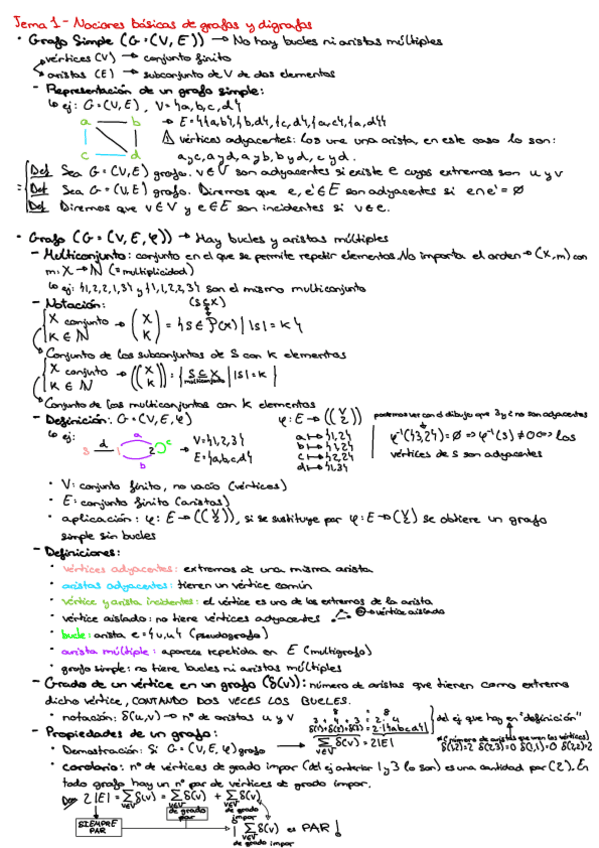 Tema 1 - Nociones básicas de grafos y digrafos
• Grafo Simple (G=(V,E)) → No hay bucles ni aristas múltiples
vértices (V) → conjunto finito
aristas (E) → subconjunto de V de dos elementos
- Representación de un grafo simple:
ej: G=(V,E), V={a,b,c,d}
a b → E={{a,b},{b,d},{c,d},{a,c},{a,d}}
⚠ vértices adyacentes: los une una arista, en este caso lo son:
c d a y c, a y d, a y b, b y d, c y d.
Def Sea G=(V,E) grafo. v∈V son adyacentes si existe e cuyos extremos son u y v
Def Sea G=(V,E) grafo. Diremos que e, e'∈E son adyacentes si e∩e'=Ø
Def Diremos que v∈V y e∈E son incidentes si v∈e.
• Grafo (G=(V,E,φ)) → Hay bucles y aristas múltiples
- Multiconjunto: conjunto en el que se permite repetir elementos. No importa el orden → (X,m) con
m: X → N (= multiplicidad)
ej: {1,2,2,1,3} y {1,1,2,2,3} son el mismo multiconjunto
- Notación: (S⊆X)
X conjunto → (X K) = {S∈P(X) | |S|=K}
K∈N
Conjunto de los subconjuntos de S con K elementos
X conjunto → ((X K)) = {S⊆X | |S|=K}
K∈N multiconjunto
Conjunto de los multiconjuntos con K elementos
- Definición: G=(V,E,φ) φ: E → ((V 2)) podemos ver con el dibujo que 3 y 2 no son adyacentes
ej: 3 d 1 a 2 c b V={1,2,3} E={a,b,c,d}
a ↦ {1,2}
b ↦ {1,2}
c ↦ {2,2}
d ↦ {1,3}
φ⁻¹({3,2})=Ø ⇒ φ⁻¹(S)≠Ø ⇔ los
vértices de S son adyacentes
• V: conjunto finito, no vacío (vértices)
• E: conjunto finito (aristas)
• aplicación: φ: E → ((V 2)), si se sustituye por φ: E → (V 2) se obtiene un grafo
simple sin bucles
- Definiciones:
• vértices adyacentes: extremos de una misma arista
• aristas adyacentes: tienen un vértice común
• vértice y arista incidentes: el vértice es uno de los extremos de la arista
• vértice aislado: no tiene vértices adyacentes → vértice aislado
• bucle: arista e={u,u} (pseudografo)
• arista múltiple: aparece repetida en E (multigrafo)
• grafo simple: no tiene bucles ni aristas múltiples
- Grado de un vértice en un grafo (δ(v)): número de aristas que tienen como extremo
dicho vértice, CONTANDO DOS VECES LOS BUCLES.
• notación: δ(u,v) → nº de aristas u y v
- Propiedades de un grafo:
δ(1)+δ(2)+δ(3) = 2·|{abcd}|
del ej que hay en "definición"
• Demostración: Si G=(V,E,φ) grafo → Σ δ(v) = 2|E|
v∈V
δ(1,2)=2 δ(2,3)=0 δ(1,1)=0
• corolario: nº de vértices de grado impar (del ej anterior 1 y 3 lo son) es una cantidad par (2). En
todo grafo hay un nº par de vértices de grado impar.
2|E| = Σ δ(v) = Σ δ(v) + Σ δ(v)
v∈V v∈V v∈V
de grado par
de grado impar
SIEMPRE PAR
Σ δ(v) es PAR!
v∈V
de grado impar